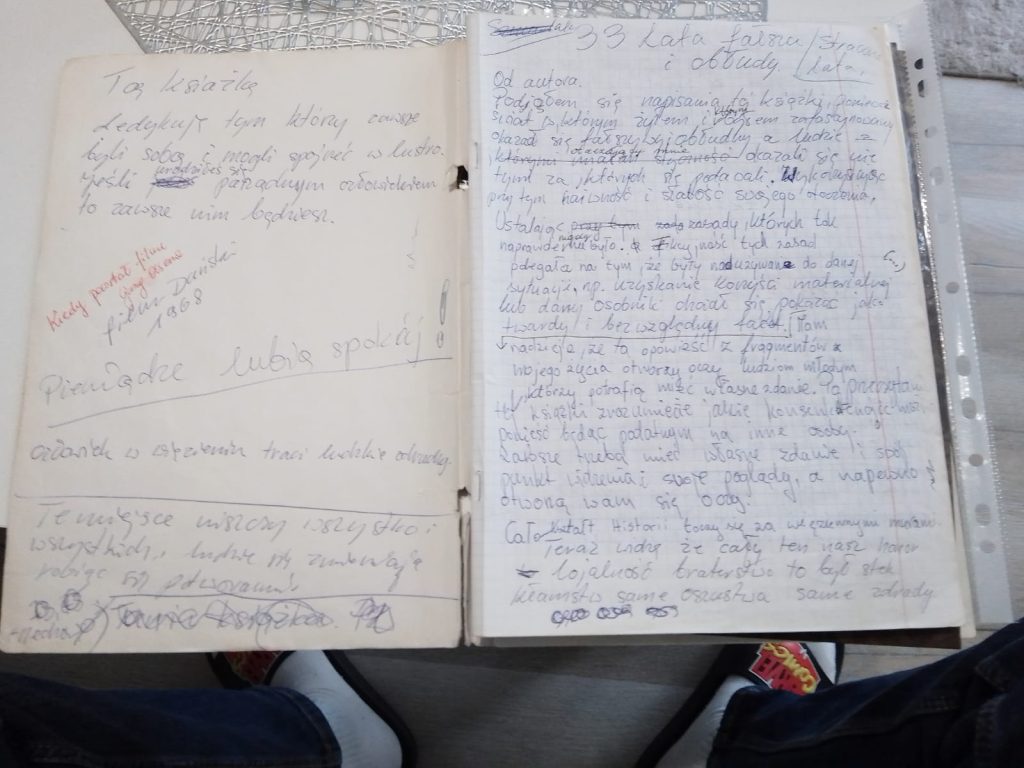 Tą książkę
dedykuję tym którzy zawsze
byli sobą i mogli spojrzeć w lustro.
jeśli urodziłeś się porządnym człowiekiem
to zawsze nim będziesz.
Kiedy powstał filme
film Duński
1968
Pieniądze lubią spokój
człowiek w więzieniu traci ludzkie odruchy.
Te miejsce niszczy wszystko i
wszystkich, ludzie się zmieniają
robiąc się potworami
33 Lata fałszu
i obłudy
Stracone
lata,
Od autora.
Podjąłem się napisania tej książki, ponieważ
świat w którym żyłem i byłem zafascynowany
okazał się fałszywy i obłudny a ludzie z
którymi miałem styczność okazali się nie
tymi za których się podawali. Wykorzystując
przy tym naiwność i słabość swojego otoczenia,
Ustalając przy tym zasady, których tak
naprawdę nie było. Fikcyjność tych zasad
polegała na tym, że były nadużywane do danej
sytuacji np. uzyskanie korzyści materialnej
lub dany osobnik chciał się pokazać jako
twardy i bezwzględny facet. Mam
nadzieję, że ta opowieść z fragmentów z
mojego życia otworzy oczy ludziom młodym
którzy potrafią mieć własne zdanie. Po przeczytaniu
tej książki zrozumiecie jakie konsekwencje może
ponieść będąc podatnym na inne osoby.
Zawsze trzeba mieć własne zdanie i swój
punkt widzenia i swoje poglądy, a napewno
otworzą wam się oczy.
Cało kształt Historii toczy się za więziennymi murami.
Teraz widzę że cały ten nasz honor
lojalność braterstwo to był stek
kłamstw same oszustwa same zdrady